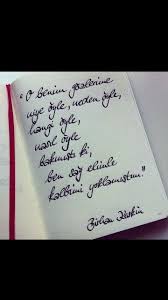 "O benim gözlerime
niye öyle, neden öyle,
hangi öyle,
nasıl öyle
bakmıştı ki,
ben sağ elimle
kalbimi yoklamıştım."
Birhan Keskin